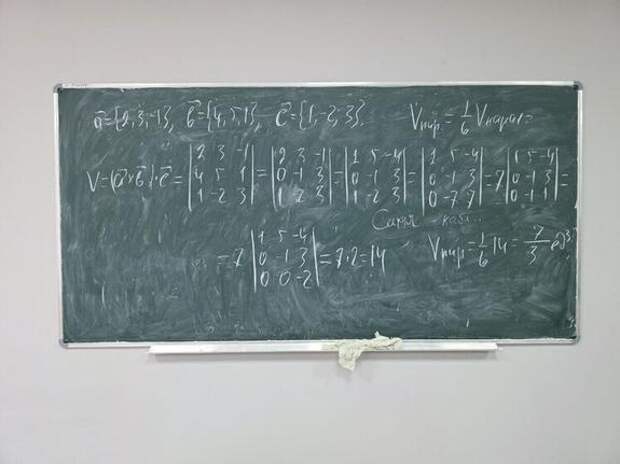 a⃗={2,3,-1}, b⃗={4,5,1}, c⃗={1,-2,3}. Vпир=1/6 Vпарал=
V=(a⃗×b⃗)·c⃗= |2 3 -1; 4 5 1; 1 -2 3| = |2 3 -1; 0 -1 3; 1 -2 3| = |1 5 -4; 0 -1 3; 1 -2 3| = |1 5 -4; 0 -1 3; 0 -7 7| = 7 |1 5 -4; 0 -1 3; 0 -1 1| =
= 7 |1 5 -4; 0 -1 3; 0 0 -2| = 7·2=14 Vпир=1/6 14= 7/3 ед³.